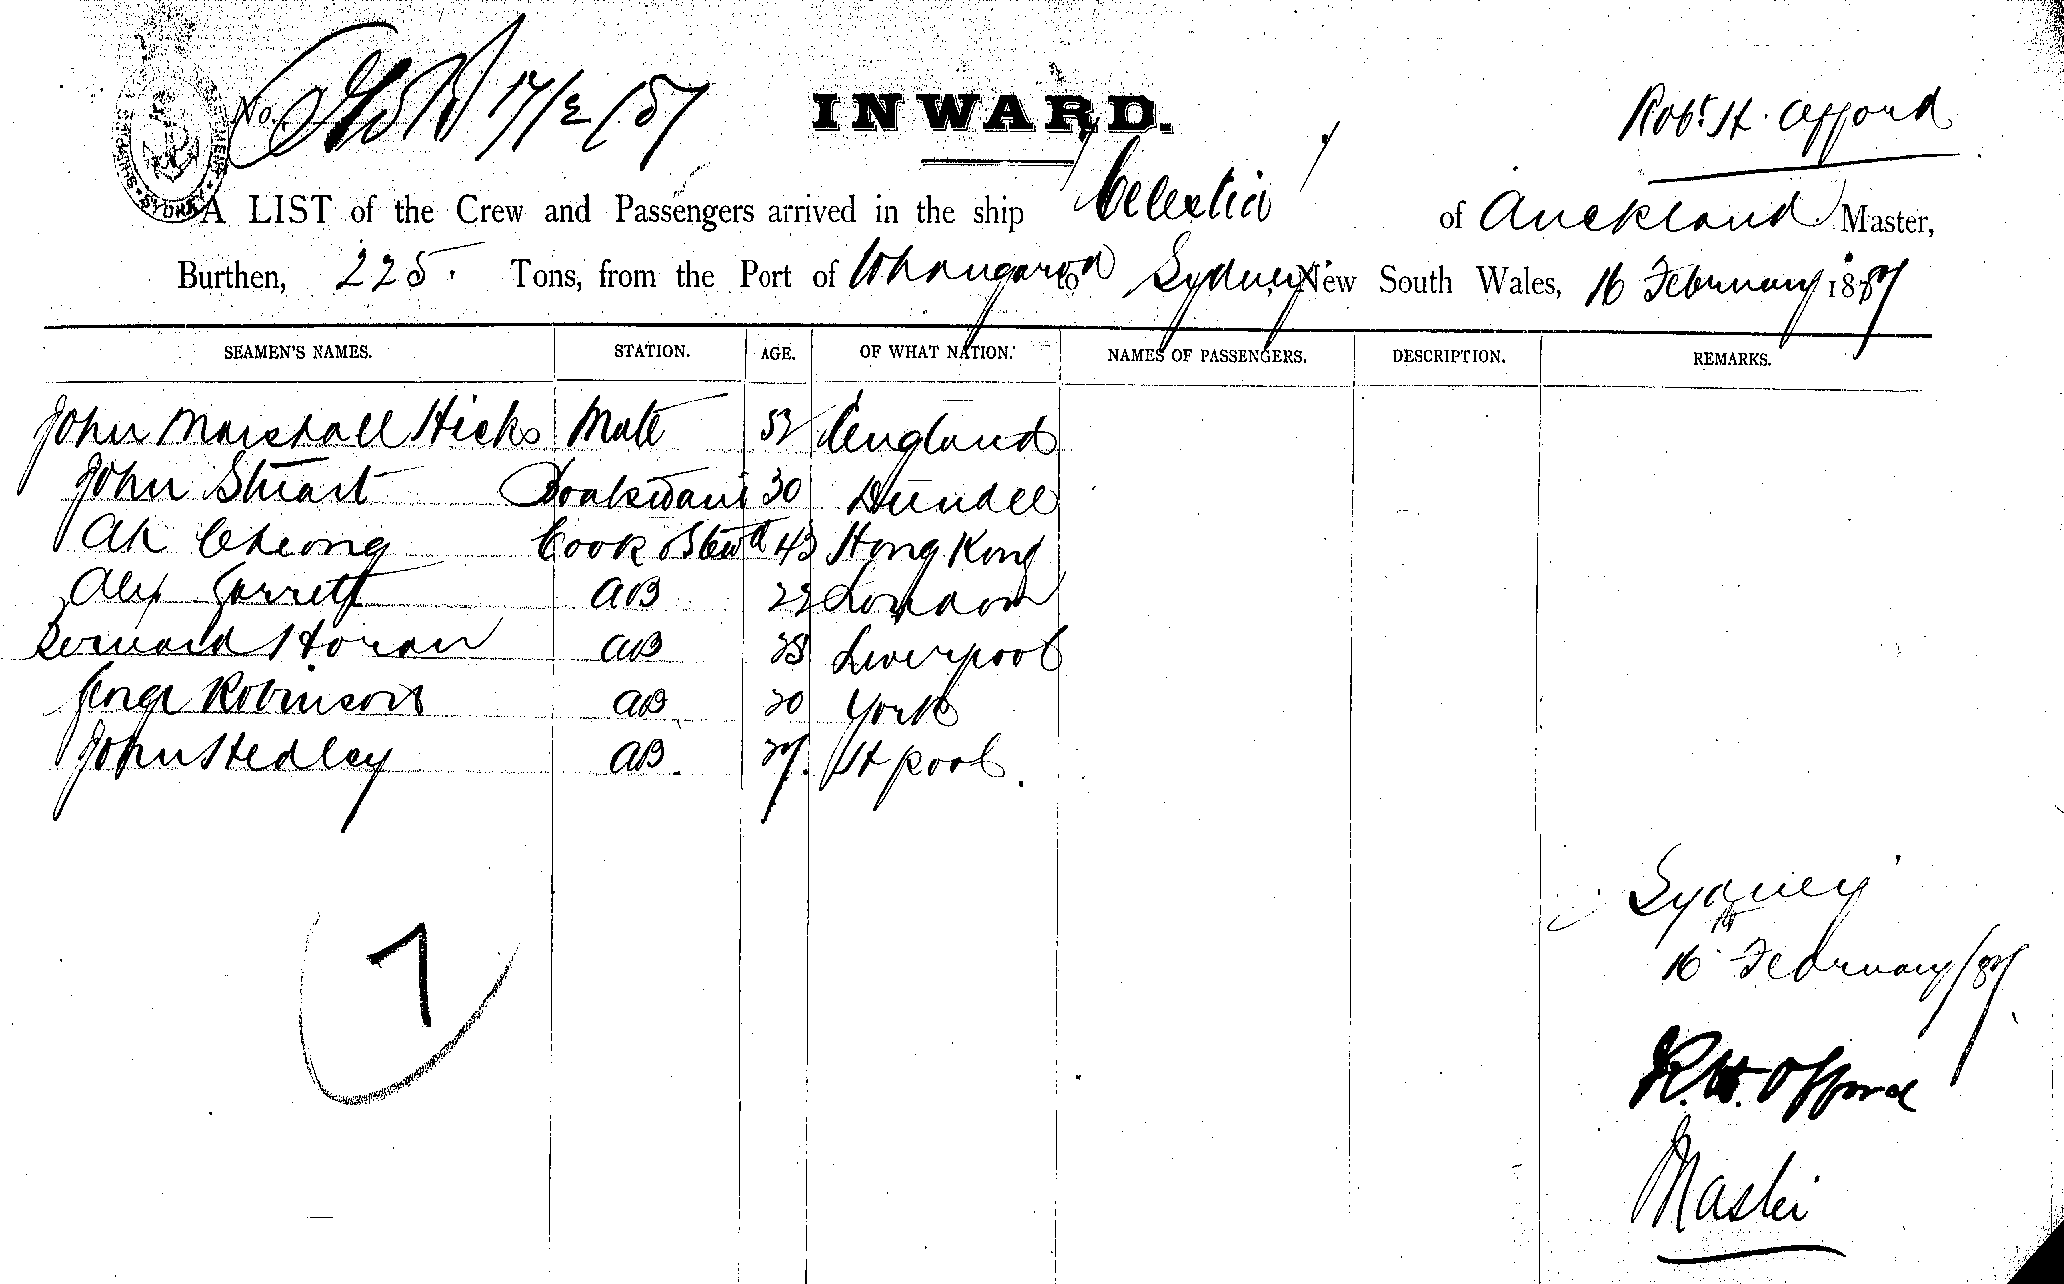 No. 17/2/87
INWARD.
Robt. H. Offord
A LIST of the Crew and Passengers arrived in the ship "Celestia" of Auckland Master,
Burthen, 225. Tons, from the Port of Whangaroa to Sydney, New South Wales, 16 February 1887
SEAMEN'S NAMES. STATION. AGE. OF WHAT NATION. NAMES OF PASSENGERS. DESCRIPTION. REMARKS.
John Marshall Hicks Mate 52 England
John Stuart Boatswain 30 Dundee
Ah Cheong Cook & Stewd 43 Hong Kong
Alex Garrett AB London
Bernard Horan AB 25 Liverpool
George Robinson AB 20 York
John Hedley AB. 27. Htpool.
7
Sydney
16th February/87.
R. H. Offord
Master